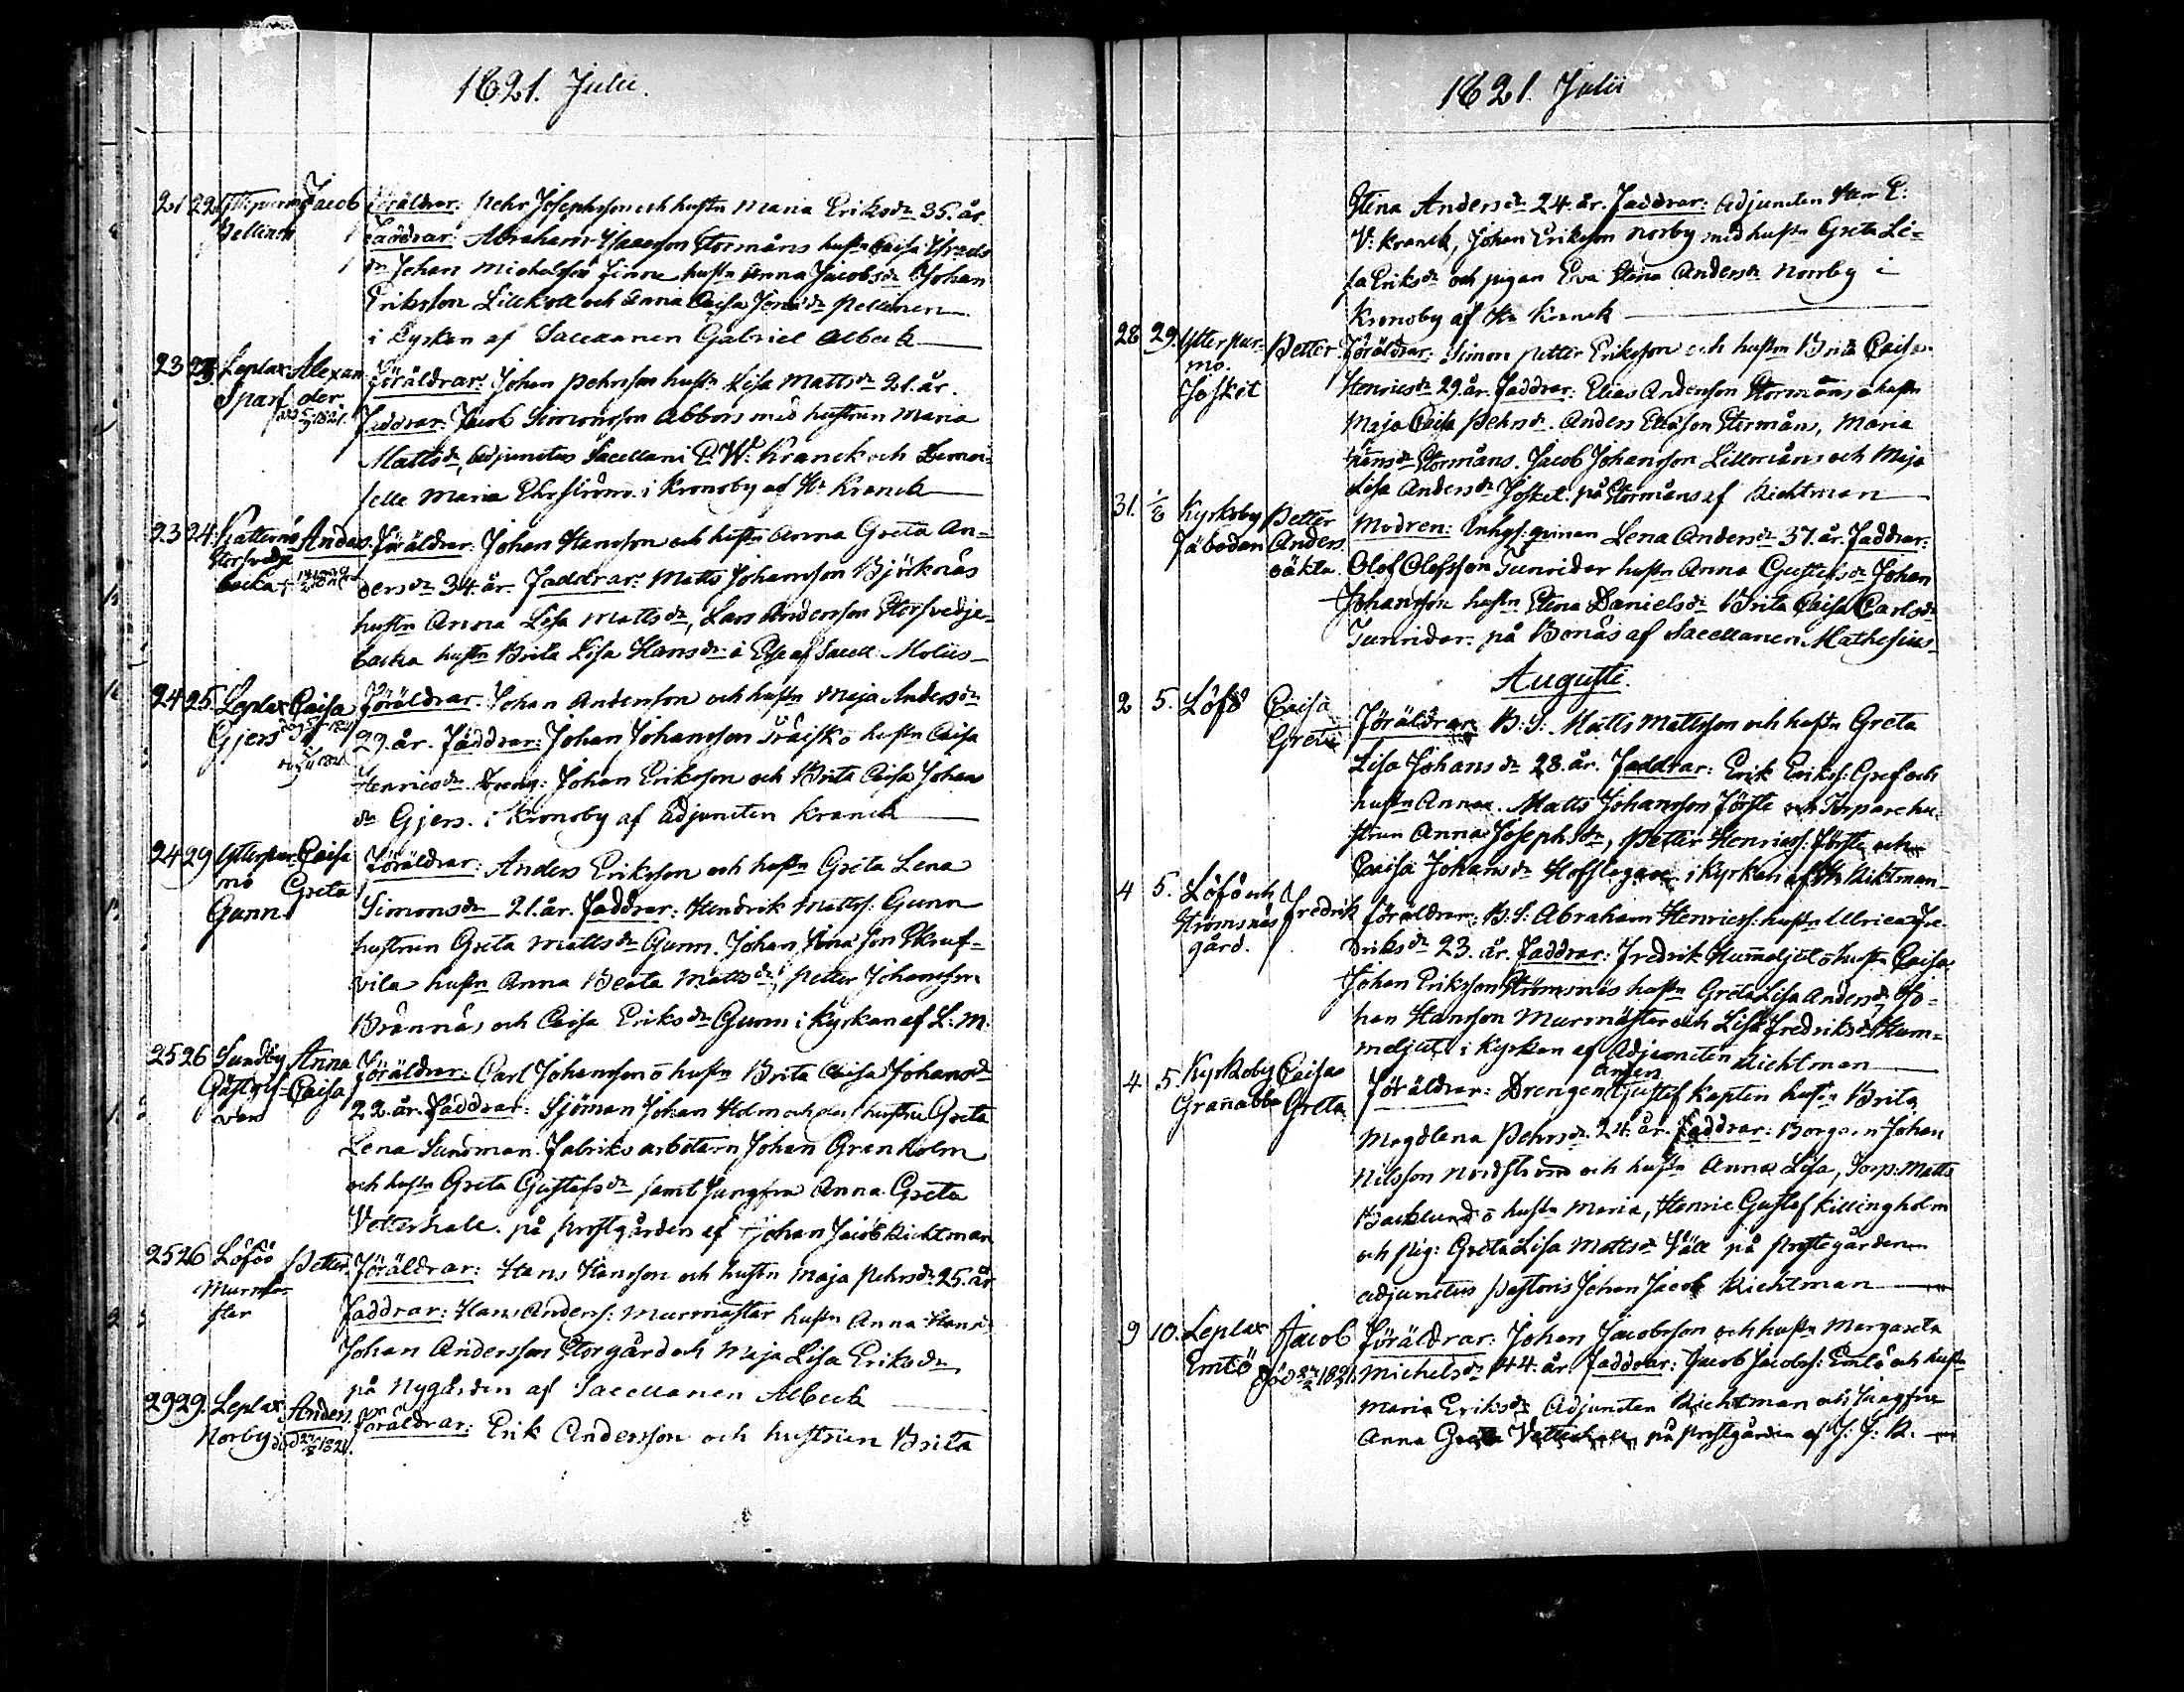 1821. Julii.
21 22 Ytterpurmo Jacob Föräldrar: Pehr Josephsson och hustn Maria Eriksdr 35. år.
Pellinen Faddrar: Abraham Isacsson Stormåns hustn Caisa Isracs
dr Johan Michelsson Finne hustn Anna Jacobsdr Johan
Eriksson Lillkull och Anna Caisa Jonsdr Pellinen
i Kyrkan af Sacellanen Gabriel Albeck
23 23. Leplax Alexan Föräldrar: Johan Pehrsson hustn Lisa Mattsdr 21. år.
Sparf der. Faddrar: Jacob Simonsson Abbors med hustrun Maria
1821.
Mattsdr, Adjunctus Sacellani E. W: Kranck och Demoi-
selle Maria Ehrström i Kronoby af Hr Kranck
23 24. Katternö Anders. Föräldrar: Johan Hansson och hustn Anna Greta An-
Storsvedje
backa dersdr 34. år. Faddrar: Matts Johansson Björknäs
hustn Anna Lisa Mattsdr, Lars Andersson Storsvedje-
backa hustn Brita Lisa Hansdr i Esse af Sacell: Moliis
24 25. Leplax Caisa Föräldrar. Johan Andersson och hustn Maja Andersdr
Gjers 29. år. Faddrar: Johan Johansson Träisk o hustn Caisa
Henricsdr. Dreng: Johan Eriksson och Brita Caisa Johans
dr Gjers. i Kronoby af Adjuncten Kranck
24 29 Ytterpur- Caisa Föräldrar: Anders Eriksson och hustn Greta Lena
mo Greta
Gunn Simonsdr 21. år. Faddrar: Hendrik Mattss: Gunn
hustrun Greta Mattsdr Gunn. Johan Jonasson Skruf-
vila hustn Anna Beata Mattsdr, Petter Johansson
Brännäs och Caisa Eriksdr Gunn i Kyrkan af L: M:
25 26 Sundby Anna Föräldrar: Carl Johansson o hustn Brita Caisa Johansdr
Caisa 22. år. Faddrar: Sjöman Johan Holm och des hustru Greta
Lena Sundman. Fabriks arbetarn Johan Grenholm
och hustn Greta Gustafsdr samt Jungfrun Anna Greta
Vetterhall. på Prostgården af Johan Jacob Kicktman
25 26 Löföö Petter. Föräldrar: Hans Hansson och hustn Maja Pehrsdr 25. år
Murmä-
star Faddrar: Hans Anderss: Murmästar hustn Anna Hansdr
Johan Andersson Storgård och Maja Lisa Eriksdr
på Nygården af Sacellanen Albeck
29 29. Leplax Anders. Föräldrar: Erik Andersson och hustrun Brita
Norby
1821. Julii
Stina Andersdr 24. år. Faddrar: Adjuncten Herr E:
W: Kranck, Johan Eriksson Norby med hustn Greta Li-
sa Eriksdr och pigan Eva Stina Andersdr Norrby i
Kronoby af Hr Kranck
28 29. Ytterpur- Petter Föräldrar: Simon Petter Eriksson och hustn Brita Caisa
mo.
Josket Henricsdr 29. år. Faddrar: Elias Andersson Stormåns o hustn
Maja Caisa Pehrsdr. Anders Eliasson Stormåns, Maria
Hansdr Stormåns. Jacob Johansson Lillmåns och Maja
Lisa Andersdr Josket. på Stormåns af Kicktman
31. 1/8 Kyrkoby Petter Modren: Inhys: qvinan Lena Andersdr 37. år. Faddrar:
Fäbodan Anders.
oäkta Olof Olofsson Sunnidar hustn Anna Gustafsdr Johan
Johansson hustn Stina Danielsdr Brita Caisa Carlsdr
Sunnidar. på Bonäs af Sacellanen Mathesius
Augusti.
2 5. Löfö Caisa Föräldrar B: S: Matts Mattsson och hustn Greta
Greta
Lisa Johansdr 28. år. Faddrar: Erik Erikss: Gref och
hustn Anna. Matts Johansson Förste och Torpare hu-
strun Anna Josephsdr, Petter Henricss: Förste och
Caisa Johansdr Hofslagare i Kyrkan af Hr Kicktman
4 5. Löfö och Fredrik Föräldrar: B. S: Abraham Henricss: hustn Ulrica Fre-
Strömsnäs
gård. driksdr 23. år. Faddrar: Fredrik Hummeljut o hustn Caisa
Johan Eriksson Strömsnäs hustn Greta Lisa Andersdr Jo-
han Hansson Murmästar och Lisa Fredriksdr Hum-
meljut i Kyrkan af Adjuncten Kicktman
4 5 Kyrkoby Caisa Föräldrar: Drengen Gustef Kapten hustn Brita
Granabba Greta. Magdlena Pehrsdr 24. år. Faddrar: Borgaren Johan
Nilsson Nordström och hustn Anna Lisa, Torp: Matts
Backlund o hustn Maria, Henric Gustaf Killingholm
och Pig: Greta Lisa Mattsdr Wäll på Prostegården
Adjunctus Pastoris Johan Jacob Kicktman
9 10. Leplax Jacob Föräldrar: Johan Jacobsson och hustn Margareta
Emlö Död 1821. Michelsdr 44. år Faddrar: Jacob Jacobss: Emlö och hustn
Maria Eriksdr Adjuncten Kicktman och Jungfru
Anna Greta Vetterhall på Prostgården af J: J: K.